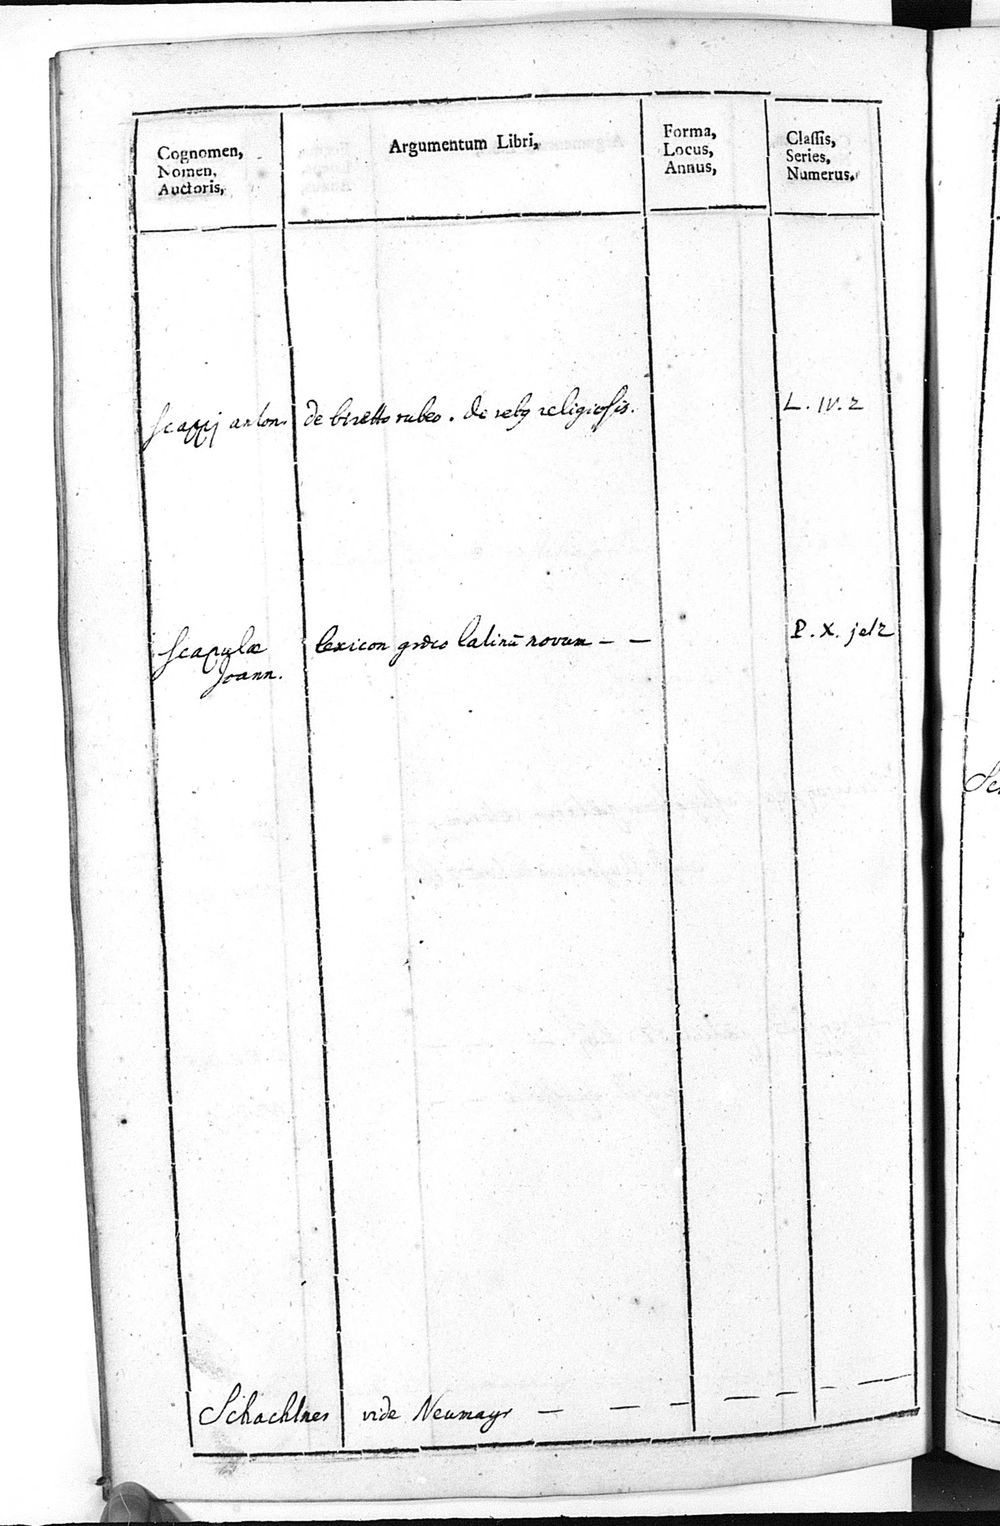 Cognomen,
Nomen,
Auctoris,
Argumentum Libri,
Forma,
Locus,
Annus,
Classis,
Series,
Numerus.
Scappj anton. de biretto rubeo. de rebꝯ religiosis. L. IV. 2
Scapulæ lexicon græco latinū novum — — P. X. j et 2
Joann.
Schachtner vide Neumayr — — — — — —